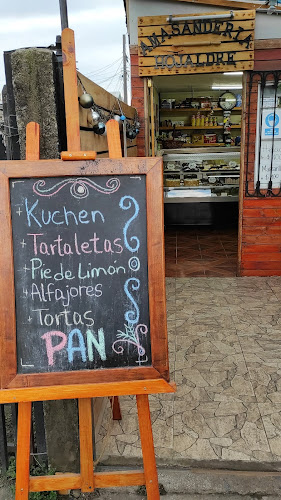 AMASANDERIA
+ Kuchen
+ Tartaletas
+ Pie de Limón
+ Alfajores
+ Tortas
PAN